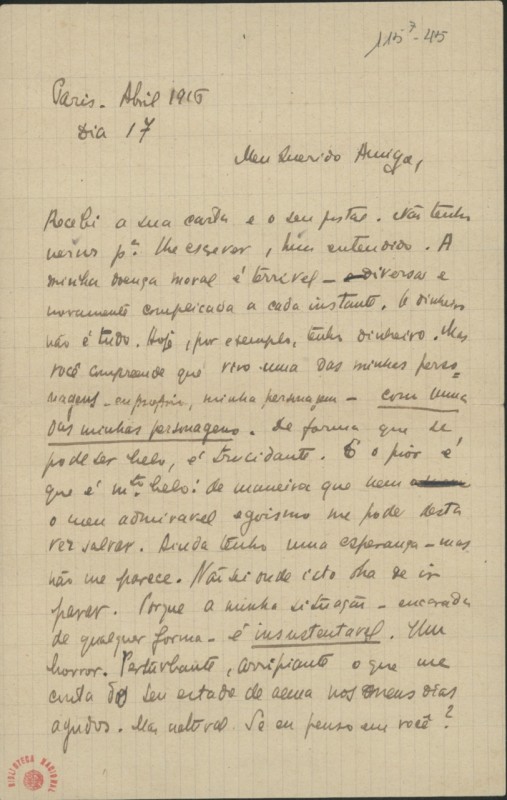 115⁷-45
Paris - Abril 1916
Dia 17
Meu Querido Amigo,
Recebi a sua carta e o seu postal. Não tenho
nervos pª lhe escrever, bem entendido. A
minha doença moral é terrivel - diversa e
novamente complicada a cada instante. O dinheiro
não é tudo. Hoje, por exemplo, tenho dinheiro. Mas
você compreende que vivo uma das minhas perso-
nagens - eu próprio, minha personagem - com uma
das minhas personagens. De forma que se
pode ser belo, é trucidante. E o pior é
que é mto belo: de maneira que nem
o meu admiravel egoismo me pode desta
vez salvar. Ainda tenho uma esperança - mas
não me parece. Não sei onde isto ha de ir
parar. Porque a minha situação - encarada
de qualquer forma - é insustentavel. Um
horror. Perturbante, arripiante o que me
conta do seu estado de alma nos meus dias
agudos. Mas natural. Se eu penso em você?
BIBLIOTECA NACIONAL